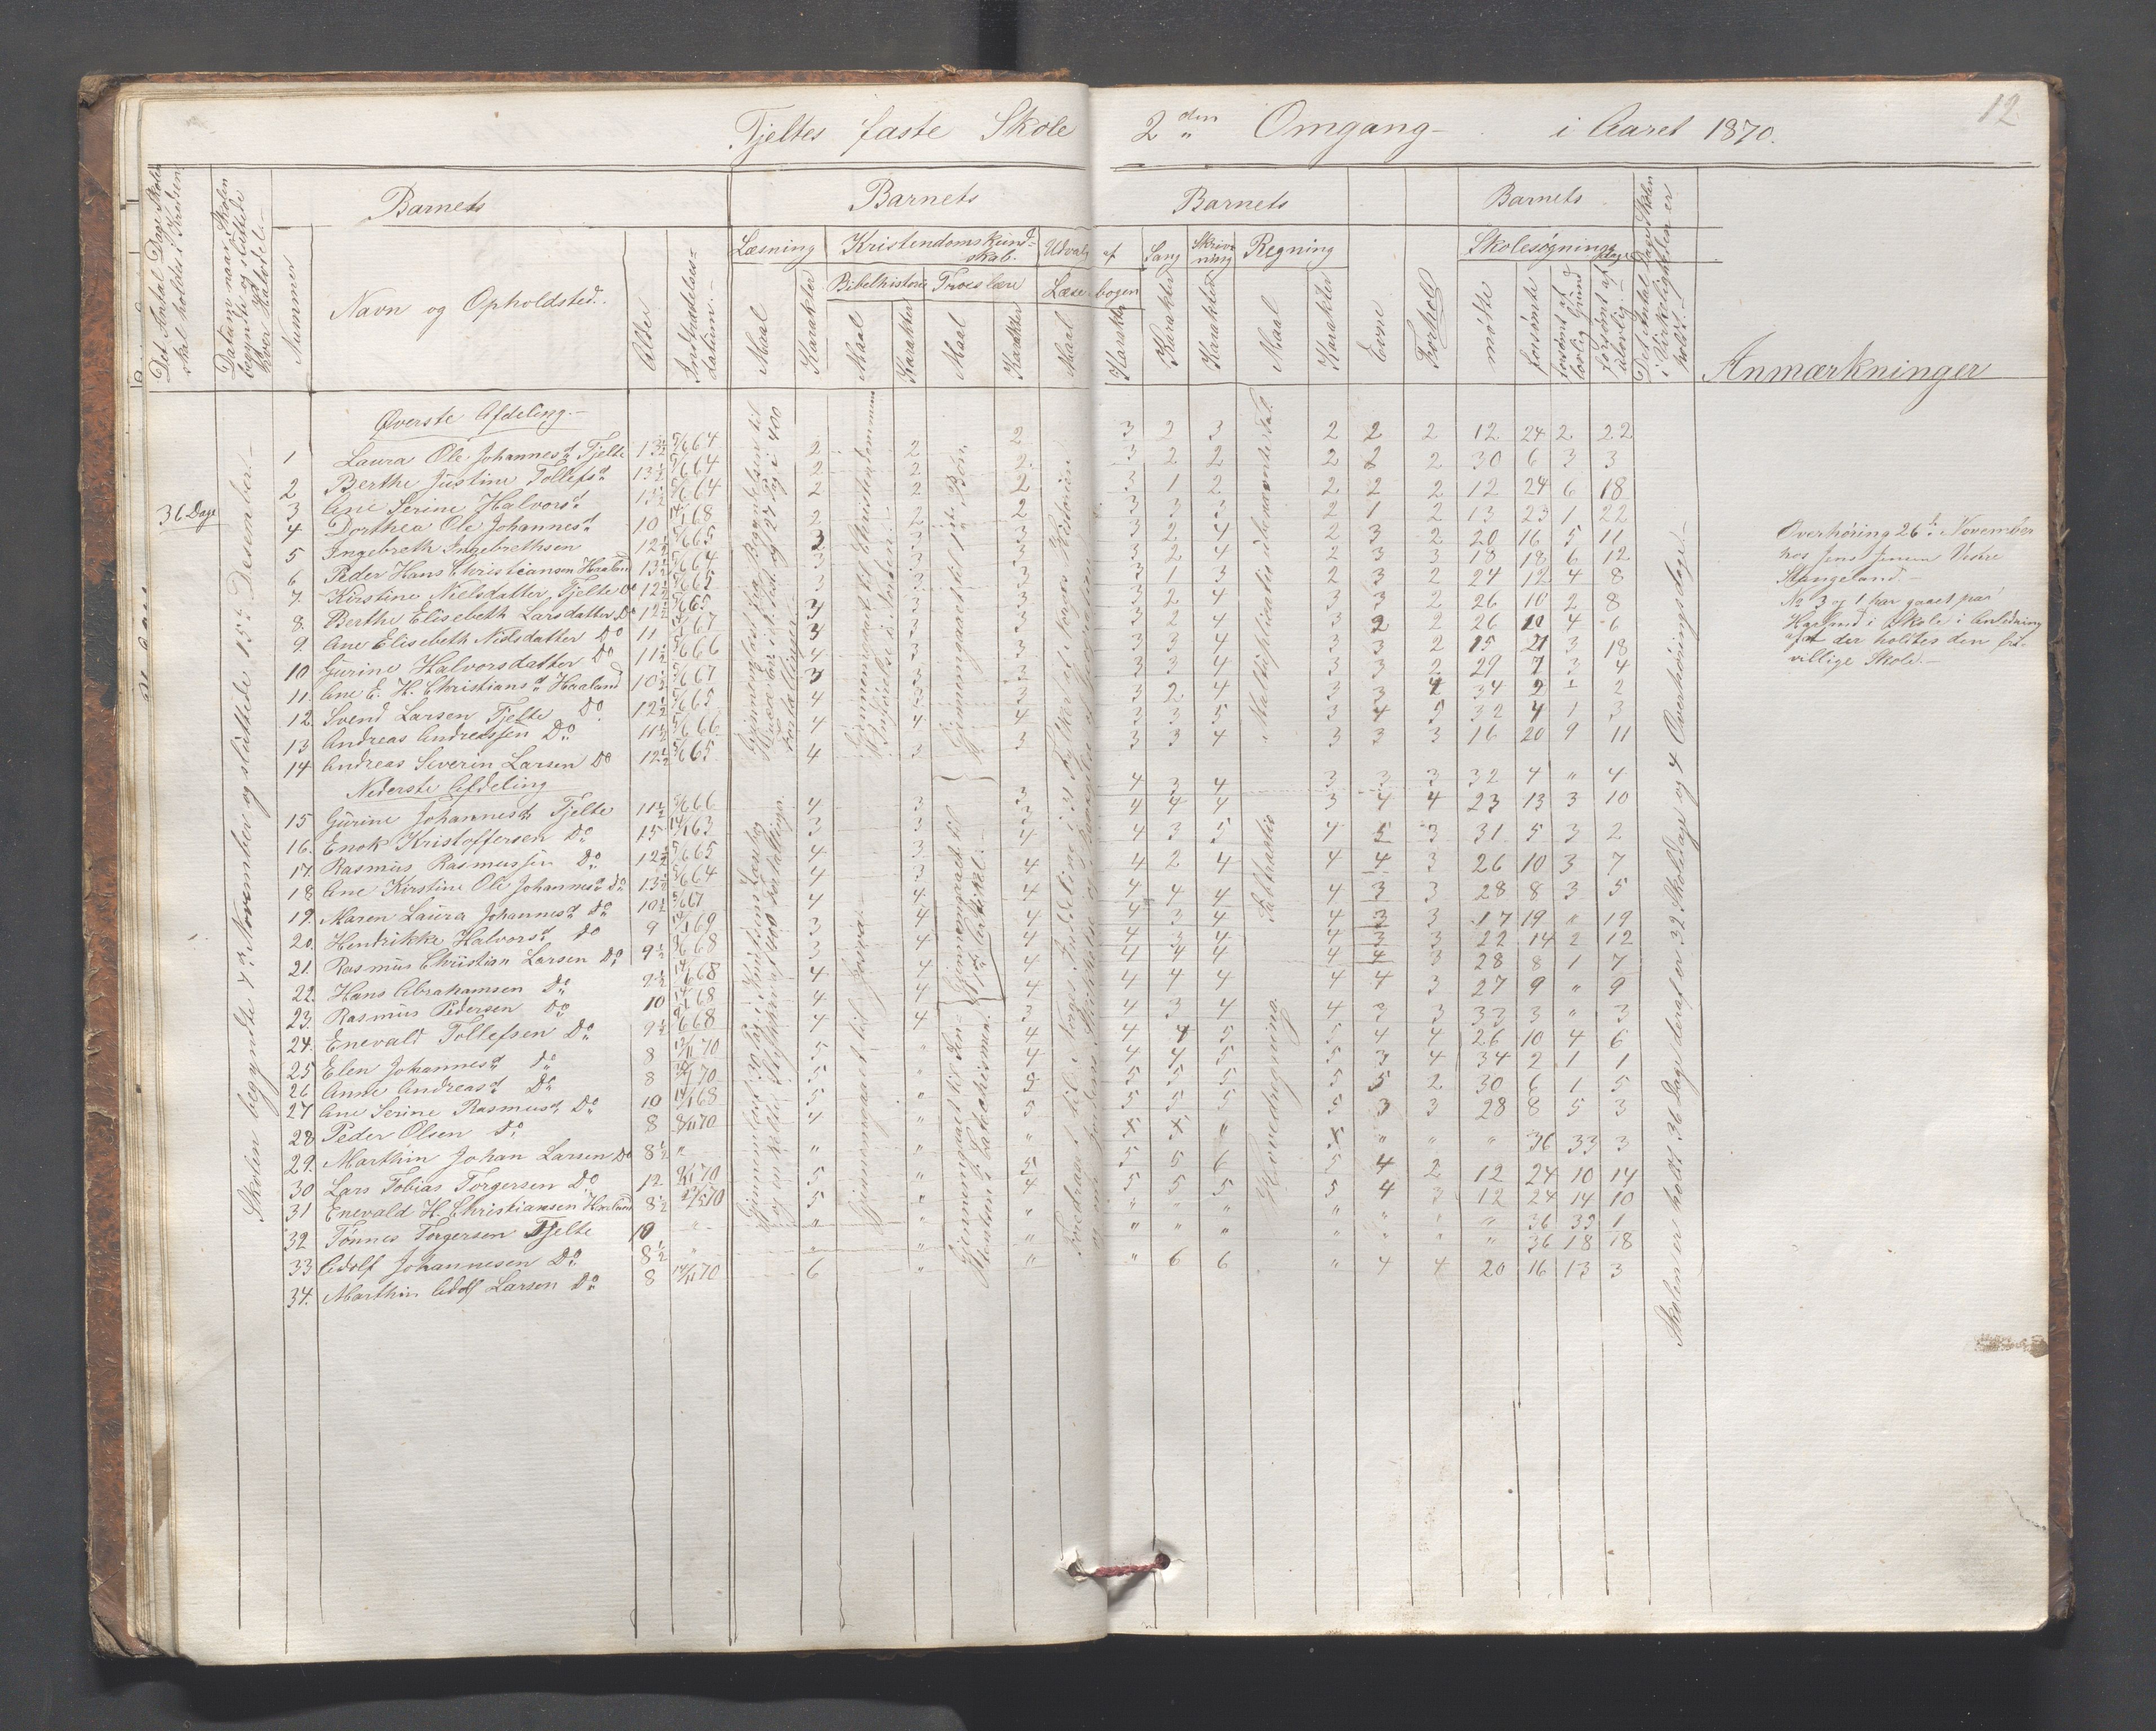 Tjeltes faste Skole 2den Omgang i Aaret 1870.
12
Det Antal Dage Skolen skal holdes i Kredsen
Datum naar Skolen begyndte og sluttede hver Halvdel.
Nummer
Barnets
Navn og Opholdsted.
Alder
Indtrædelses-datum.
Barnets
Læsning
Maal
Karakter
Kristendomskundskab.
Bibelhistorie
Maal
Karakter
Troeslære
Maal
Karakter
Udvalg af Læsebogen
Maal
Karakter
Barnets
Sang
Karakter
Skrivning
Karakter
Regning
Maal
Karakter
Evne
Forhold
Barnets
Skolesøgningsdage
mødte
forsømte
forsømt af lovlig Grund
forsømt af ulovlig
Det Antal Dage Skolen i Virkeligheden er holdt.
Anmærkninger
36 Dage
Skolen begyndte 7d November og sluttede 15d Desember.
Øverste Afdeling.
1 Laura Ole Johannesd Tjelte 13½ 5/6 64 2 2 2 3 2 3 2 2 2 12 24 2 22
2 Berthe Justine Tollefsd 13½ 5/6 64 2 2 2 3 2 2 2 2 2 30 6 3 3
3 Ane Serine Halvorsd 13½ 5/6 64 2 2 2 3 1 2 2 2 2 12 24 6 18
4 Dorthea Ole Johannesd 10 14/1 68 2 2 2 3 3 3 2 1 2 13 23 1 22
5 Ingebreth Ingebrethsen 12½ 5/6 65 3 3 3 3 2 4 2 3 2 20 16 5 11
6 Peder Hans Christiansen Haaland 13½ 5/6 64 3 3 3 3 2 4 2 3 3 18 18 6 12
7. Kirstine Nielsdatter Tjelte Do 12½ 5/6 65 3 3 3 3 1 3 2 3 2 24 12 4 8
8. Berthe Elisebeth Larsdatter Do 12½ 5/6 65 3 3 3 3 2 4 3 3 2 26 10 2 8
9. Ane Elisebeth Nielsdatter Do 11 5/6 67 3 3 3 3 2 4 3 2 2 26 10 4 6
10 Gurine Halvorsdatter Do 11½ 5/6 66 4 3 3 3 3 4 3 3 2 15 21 3 18
11. Ane E. H. Christiansd Haaland 10½ 5/6 67 3 3 3 3 3 4 3 3 2 29 7 3 4
12. Svend Larsen Tjelte Do 12½ 5/6 65 4 3 3 3 2 4 3 3 4 34 2 1 2
13 Andreas Andreassen Do 11½ 5/6 66 4 4 4 3 3 5 3 4 3 32 4 1 3
14 Andreas Severin Larsen Do 12½ 5/6 65 4 3 3 3 3 4 3 3 3 16 20 9 11
Nederste Afdeling
15 Gurine Johannesd Tjelte 11½ 5/6 66 4 3 3 4 3 4 3 3 3 32 4 " 4
16. Enok Kristoffersen Do 15 14/1 63 3 3 3 4 4 4 3 4 4 23 13 3 10
17. Rasmus Rasmussen Do 12½ 5/6 65 4 3 4 4 3 5 4 5 3 31 5 3 2
18 Ane Kirstine Ole Johannesd Do 13½ 5/6 64 4 3 4 4 2 4 4 4 3 26 10 3 7
19. Maren Laura Johannesd Do 10½ 5/6 67 4 4 4 4 4 4 4 3 3 28 8 3 5
20. Hendrikke Halvorsd Do 9 14/1 69 3 4 4 4 3 4 4 3 3 17 19 " 19
21. Rasmus Christian Larsen Do 9½ 5/6 68 3 4 4 4 3 4 4 3 3 22 14 2 12
22. Hans Abrahamsen Do 9½ 14/1 68 4 4 4 4 4 4 4 4 3 28 8 1 7
23. Rasmus Pedersen Do 10 14/1 68 4 4 4 4 4 4 4 4 3 27 9 " 9
24. Enevald Tollefsen Do 9½ 5/6 68 4 4 3 4 3 4 4 3 3 33 3 " 3
25 Elen Johannesd Do 8 11/11 70 5 " 4 4 4 5 5 4 4 26 10 4 6
26 Anne Andreasd Do 8 70 5 " 4 4 4 5 5 3 4 34 2 1 1
27 Ane Serine Rasmusd Do 10 14/1 68 5 " 5 5 5 5 5 5 2 30 6 1 5
28 Peder Olsen Do 8 8/11 70 4 " 5 5 5 5 5 3 3 28 8 5 3
29. Marthin Johan Larsen Do 8½ " " " " " " " 36 33 3
30 Lars Tobias Torgersen Do 12 70 5 " 5 5 5 6 5 4 2 12 24 10 14
31 Enevald H. Christiansen Haaland 8½ 70 5 " 4 5 5 5 5 4 3 12 24 14 10
32 Tønnes Torgersen Tjelte 10 " " " " " " " " " " " 36 35 1
33 Adolf Johannesen Do 8½ " " " " " " " " 36 18 18
34. Marthin Adolf Larsen Do 8 14/11 70 6 " " " 6 6 " 4 4 20 16 13 3
Gjennemgaaet til Christendommens Indførelse i Norden.
Gjennemgaaet til 1ste Bøn.
Gjennemgaaet til Josva
Multiplikation
Subtraktion
Hovedregning.
Skolen er holdt 36 Dage deraf er 32 Skoledage og 4 Overhøringsdage.
Overhøring 26d November
hos Jens Jensen Vestre
Stangeland.
No 3 og 1 har gaaet paa
Haaland i Skole i Anledning
af at der holdtes den fri-
villige Skole.